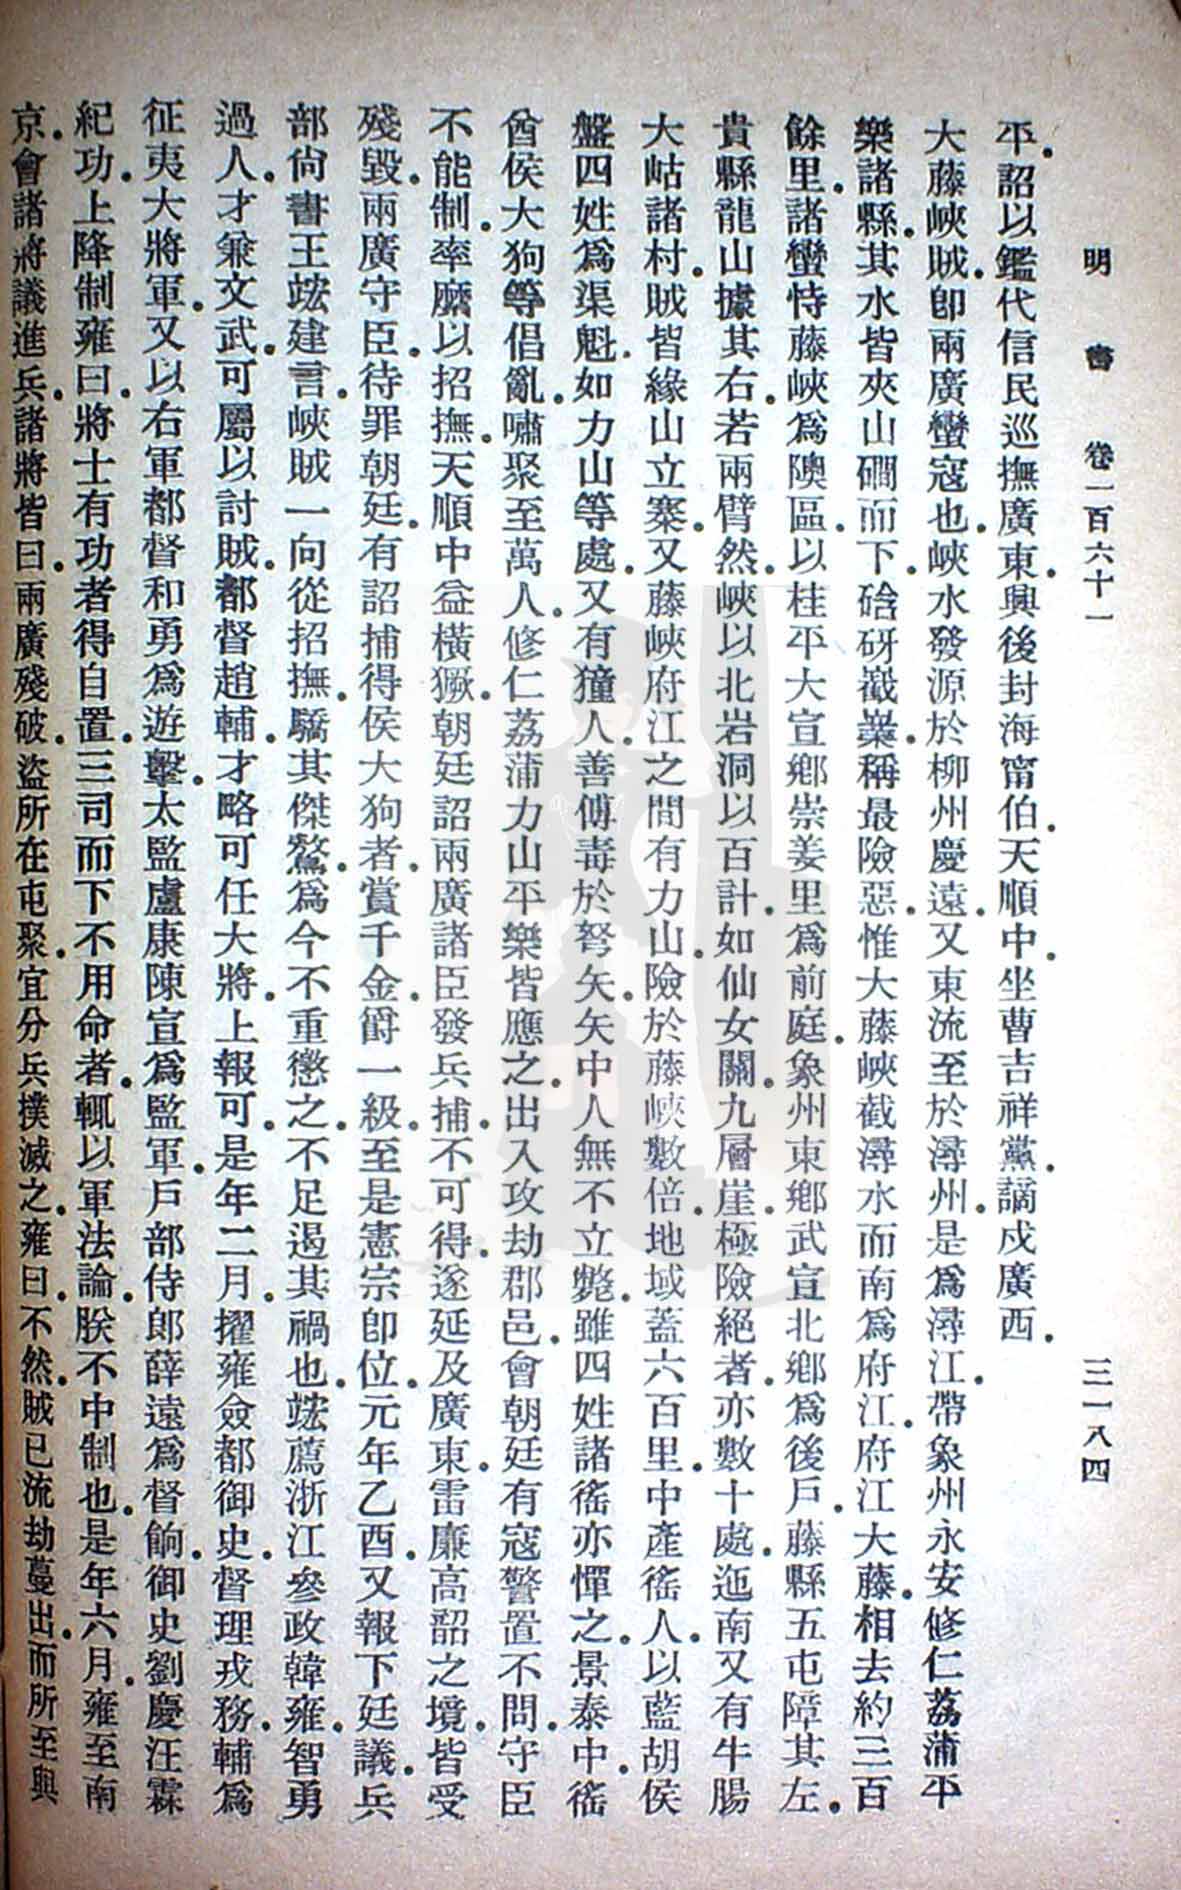 明書　卷一百六十一　三一八四
平．詔以鑑代信民巡撫廣東．興後封海甯伯．天順中．坐曹吉祥黨．謫戍廣西．
大藤峽賊．卽兩廣蠻寇也．峽水發源於柳州慶遠．又東流至於潯州．是爲潯江．帶象州永安修仁荔蒲平
樂諸縣．其水皆夾山磵而下．硆硏巀嶪．稱最險惡．惟大藤峽截潯水而南爲府江．府江大藤．相去約三百
餘里．諸蠻恃藤峽爲隩區．以桂平大宣鄉崇姜里爲前庭．象州東鄉武宣北鄉爲後戶．藤縣五屯障其左．
貴縣龍山據其右．若兩臂然．峽以北岩洞以百計．如仙女關．九層崖．極險絕者．亦數十處．迤南又有牛腸
大岵諸村．賊皆緣山立寨．又藤峽府江之間有力山．險於藤峽數倍．地域蓋六百里．中產徭人．以藍胡侯
盤四姓爲渠魁．如力山等處．又有獞人．善傅毒於弩矢．矢中人無不立斃．雖四姓諸徭亦憚之．景泰中．徭
酋侯大狗等倡亂．嘯聚至萬人．修仁荔蒲力山平樂皆應之．出入攻劫郡邑．會朝廷有寇警．置不問．守臣
不能制．率縻以招撫．天順中益橫獗．朝廷詔兩廣諸臣發兵捕．不可得．遂延及廣東．雷廉高韶之境．皆受
殘毀．兩廣守臣．待罪朝廷．有詔捕得侯大狗者．賞千金．爵一級．至是憲宗卽位．元年乙酉．又報下廷議．兵
部尙書王竑建言．峽賊一向從招撫．驕其傑驁．爲今不重懲之．不足遏其禍也．竑薦浙江參政韓雍．智勇
過人．才兼文武．可屬以討賊．都督趙輔．才略可任大將．上報可．是年二月．擢雍僉都御史．督理戎務．輔爲
征夷大將軍．又以右軍都督和勇爲遊擊．太監盧康陳宣爲監軍．戶部侍郎薛遠爲督餉．御史劉慶汪霖
紀功．上降制雍曰．將士有功者．得自置．三司而下不用命者．輒以軍法論．朕不中制也．是年六月．雍至南
京．會諸將議進兵．諸將皆曰．兩廣殘破．盜所在屯聚．宜分兵撲滅之．雍曰．不然．賊已流劫蔓出．而所至與